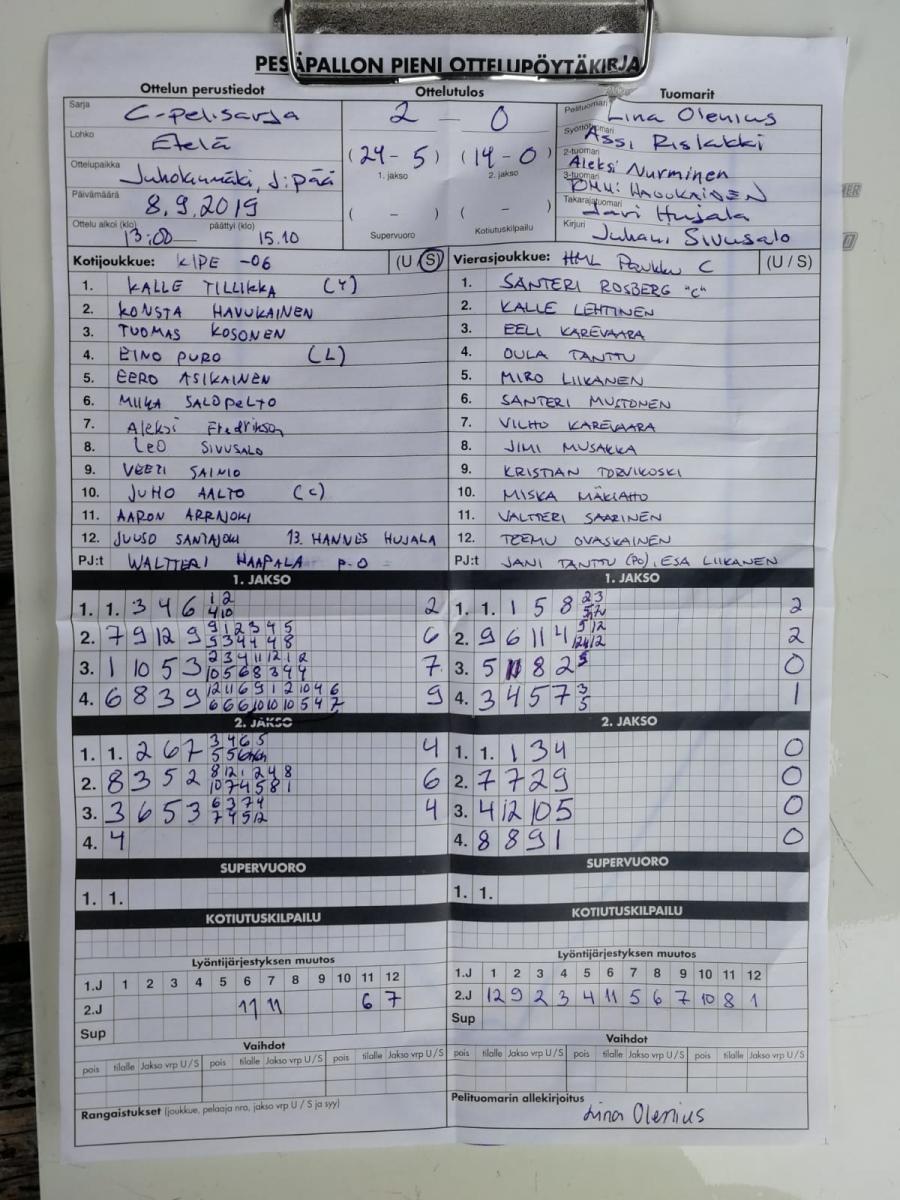 PESÄPALLON PIENI OTTELUPÖYTÄKIRJA
Ottelun perustiedot
Ottelutulos
Tuomarit
Sarja C-pelisarja
Lohko Etelä
Ottelupaikka Juhokunmäki, J:pää
Päivämäärä 8.9.2019
Ottelu alkoi (klo) 13:00 päättyi (klo) 15.10
2 – 0
(24 - 5) (14 - 0)
1. jakso 2. jakso
( - ) ( - )
Supervuoro Kotiutuskilpailu
Pelituomari Lina Olenius
Syöttötuomari Assi Rislakki
2-tuomari Aleksi Nurminen
3-tuomari HAVUKAINEN
Takarajatuomari Jari Hujala
Kirjuri Juhani Sivusalo
Kotijoukkue: KIPE -06 (U / S)
1. KALLE TILLIKKA (Y)
2. KONSTA HAVUKAINEN
3. TUOMAS KOSONEN
4. EINO PURO (L)
5. EERO ASIKAINEN
6. MIIKA SALOPELTO
7. Aleksi Fredrikson
8. LEO SIVUSALO
9. VEETI SAINIO
10. JUHO AALTO (C)
11. AARON ARRAJOKI
12. JUUSO SANTAJOKI 13. HANNES HUJALA
PJ:t WALTTERI HAAPALA P.O
Vierasjoukkue: HML Pankku C (U / S)
1. SANTERI ROSBERG "C"
2. KALLE LEHTINEN
3. EELI KAREVAARA
4. OULA TANTTU
5. MIRO LIIKANEN
6. SANTERI MUSTONEN
7. VILHO KAREVAARA
8. JIMI MUSAKKA
9. KRISTIAN TORVIKOSKI
10. MISKA MÄKIAHO
11. VALTTERI SAARINEN
12. TEEMU OVASKAINEN
PJ:t JANI TANTTU (PO), ESA LIIKANEN
1. JAKSO
1. 1. 3 4 6 1 2 2
4 10
2. 7 9 12 9 9 1 2 3 4 5 6
9 3 4 4 4 8
3. 1 10 5 3 2 3 4 11 12 1 2 7
10 5 6 8 3 4 4
4. 6 8 3 9 12 11 6 9 1 2 10 4 6 9
6 6 6 10 10 10 5 4 7
2. JAKSO
1. 1. 2 6 7 3 4 6 5 4
2. 8 3 5 2 8 12 1 2 4 8 6
10 7 4 5 8 1
3. 3 6 5 3 6 3 7 4 4
7 4 5 12
4. 4
SUPERVUORO
1. 1.
KOTIUTUSKILPAILU
Lyöntijärjestyksen muutos
1.J 1 2 3 4 5 6 7 8 9 10 11 12
2.J 11 11 6 7
Sup
Vaihdot
pois tilalle Jakso vrp U / S pois tilalle Jakso vrp U / S pois tilalle Jakso vrp U / S
Rangaistukset (joukkue, pelaaja nro, jakso vrp U / S ja syy)
1. JAKSO
1. 1. 1 5 8 2 3 2
2. 9 6 11 4 5 12 2
3. 5 11 8 2 5 0
4. 3 4 5 7 3 1
5
2. JAKSO
1. 1. 1 3 4 0
2. 7 7 2 9 0
3. 4 12 10 5 0
4. 8 8 9 1 0
SUPERVUORO
1. 1.
KOTIUTUSKILPAILU
Lyöntijärjestyksen muutos
1.J 1 2 3 4 5 6 7 8 9 10 11 12
2.J 12 9 2 3 4 11 5 6 7 10 8 1
Sup
Vaihdot
pois tilalle Jakso vrp U / S pois tilalle Jakso vrp U / S pois tilalle Jakso vrp U / S
Pelituomarin allekirjoitus
Lina Olenius